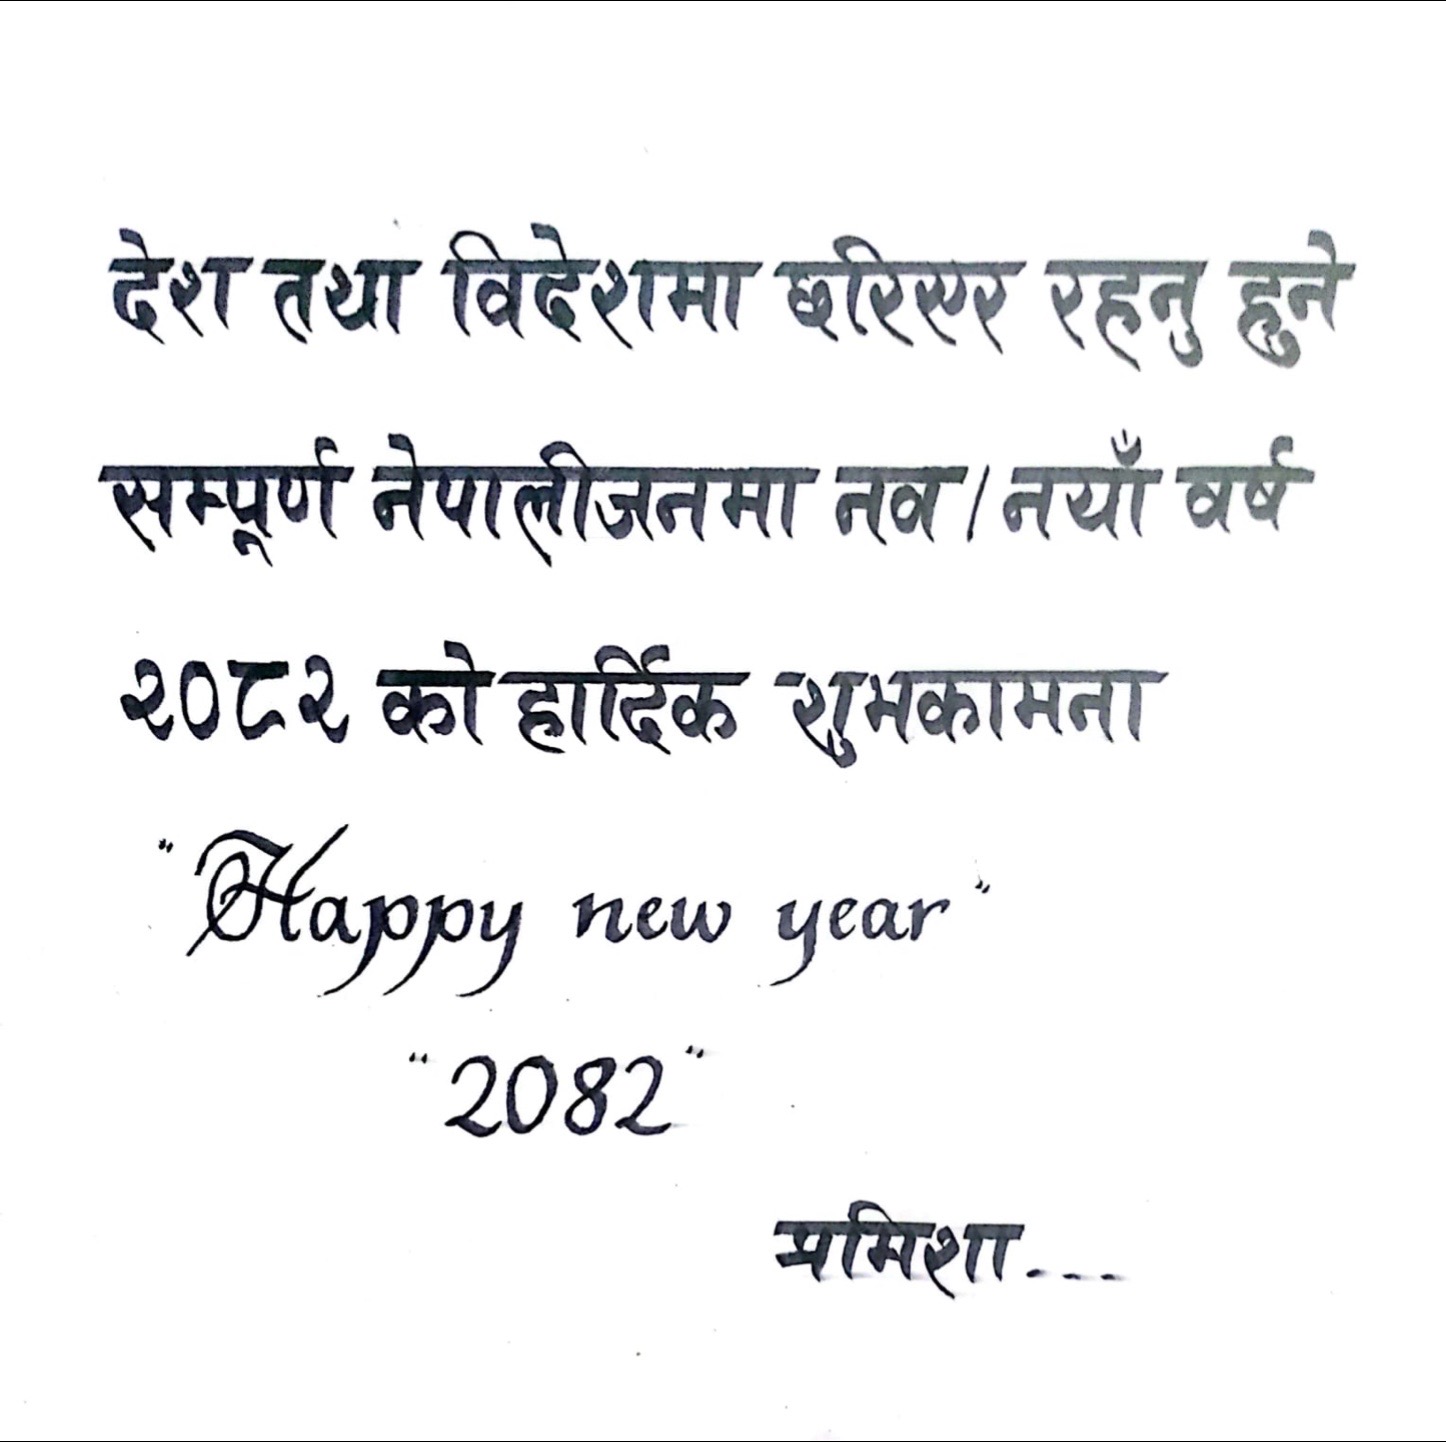 देश तथा विदेशमा छरिएर रहनु हुने
सम्पूर्ण नेपालीजनमा नव / नयाँ वर्ष
२०८२ को हार्दिक शुभकामना
"Happy new year"
"2082"
प्रमिशा....